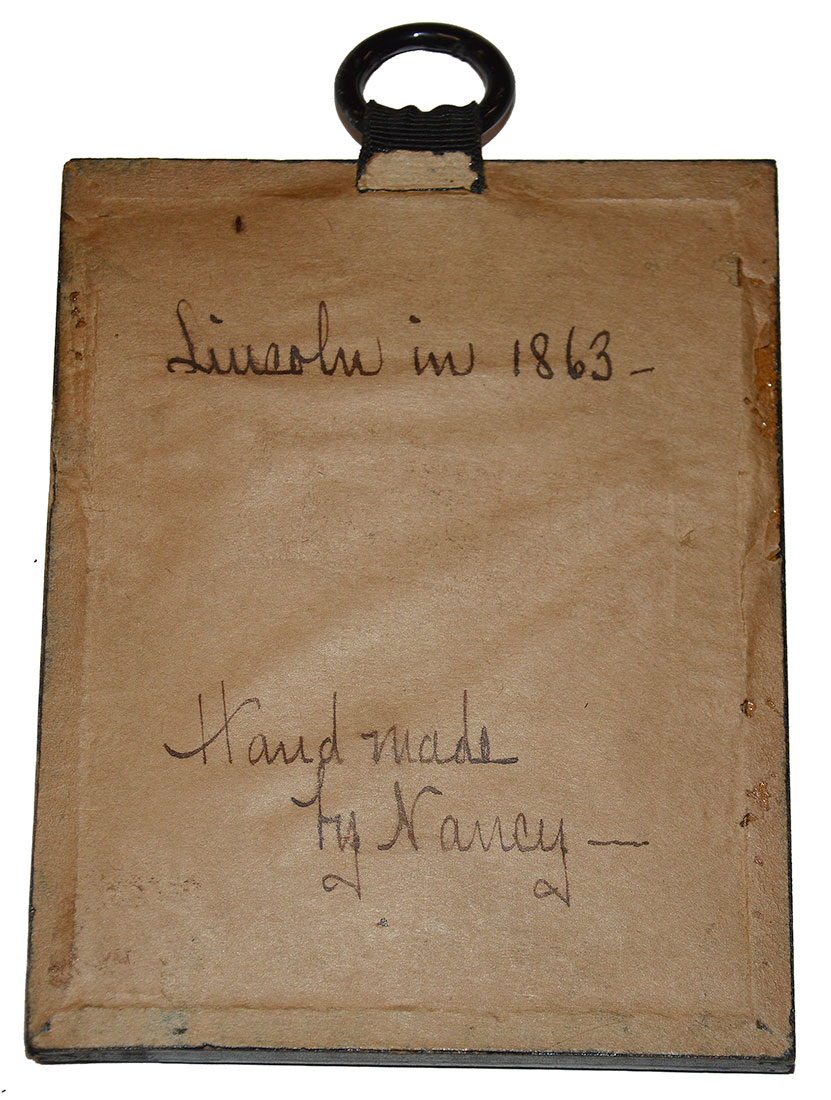 Lincoln in 1863 –
Hand made
by Nancy —